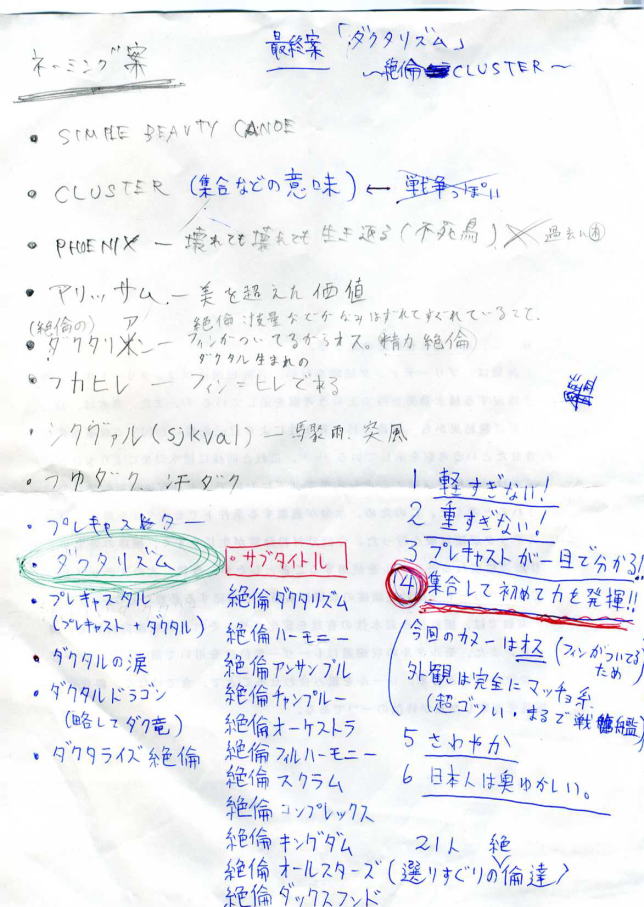 最終案「ダクタリズム」
～絶倫 CLUSTER～
ネーミング案
・ SIMPLE BEAUTY CANOE
・ CLUSTER (集合などの意味) ← 戦争っぽい
・ PHOENIX ― 壊れても壊れても生き返る(不死鳥) 過去に有
・ アリッサム ― 美を超えた価値
(絶倫の) ア 絶倫:技量などがなみはずれてすぐれていること。
・ ダクタリン ― フィンがついてるからオス。(精力絶倫)
ダクタル生まれの
・ フカヒレ ― フィン=ヒレである
・ シクヴァル(sjkval) ― 馬聚雨、突風
・ つゆダク、汗ダク
・ プレキャスター
・ ダクタリズム
・ プレキャスタル
(プレキャスト+ダクタル)
・ ダクタルの涙
・ ダクタルドラゴン
(略してダク竜)
・ ダクタライズ絶倫
・サブタイトル
絶倫ダクタリズム
絶倫ハーモニー
絶倫アンサンブル
絶倫チャンプルー
絶倫オーケストラ
絶倫フィルハーモニー
絶倫スクラム
絶倫コンプレックス
絶倫キングダム
絶倫オールスターズ(選りすぐりの倫達)
絶倫ダックスフンド
1 軽すぎない!
2 重すぎない!
3 プレキャストが一目で分かる!
4 集合して初めて力を発揮!!
(今回のカヌーはオス(フィンがついてるため)
外観は完全にマッチョ系
(超ゴツい・まるで戦艦)
5 さわやか
6 日本人は奥ゆかしい。
21人 絶